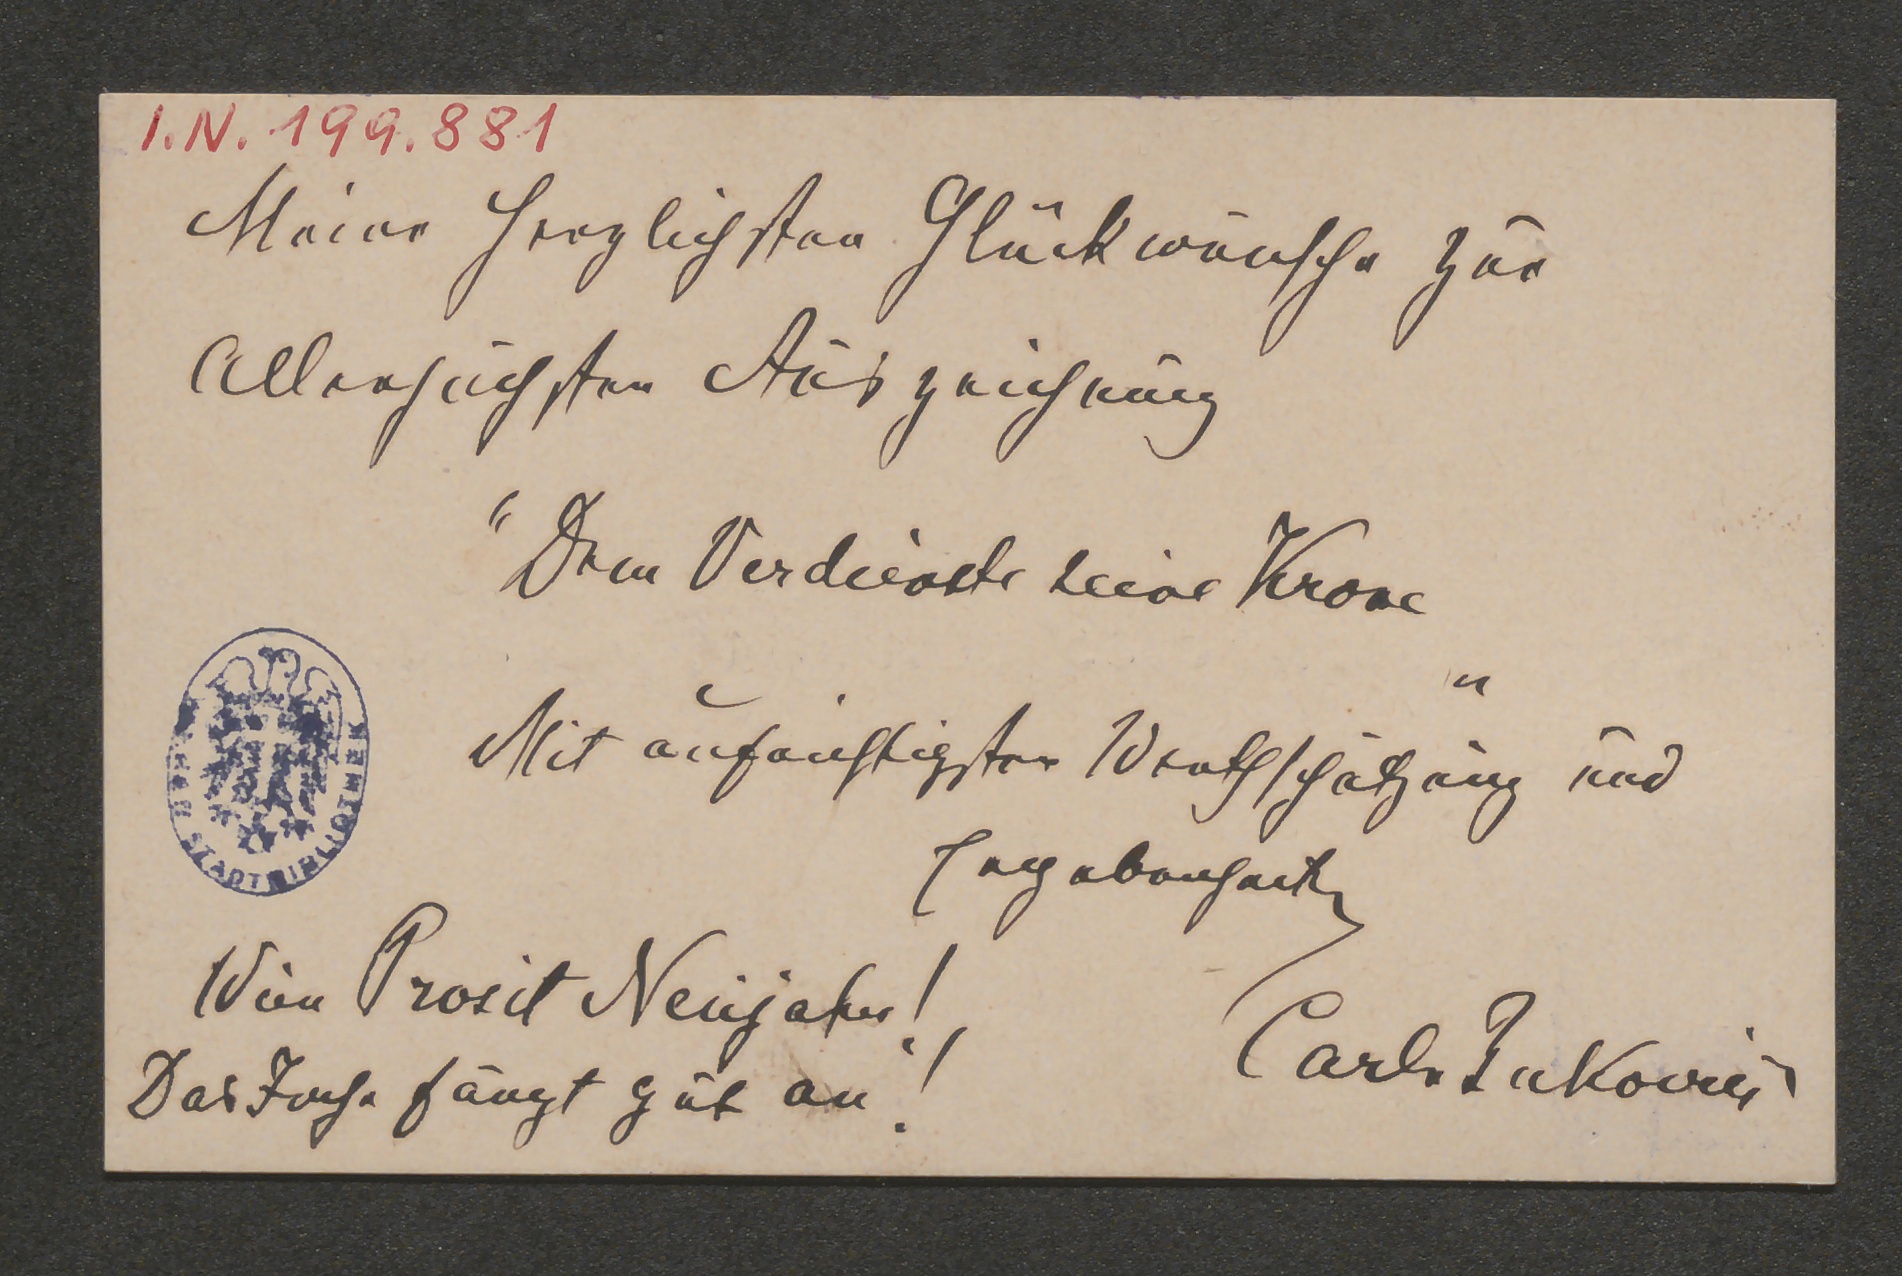 I.N. 199.881
Meine herzlichsten Glückwünsche zur
Allerhöchsten Auszeichnung
"Dem Verdienste seine Krone"
Mit aufrichtigster Werthschätzung und
Ergebenheit
Wien Prosit Neujahr!
Das Jahr fängt gut an!
Carl
STADTBIBLIOTHEK